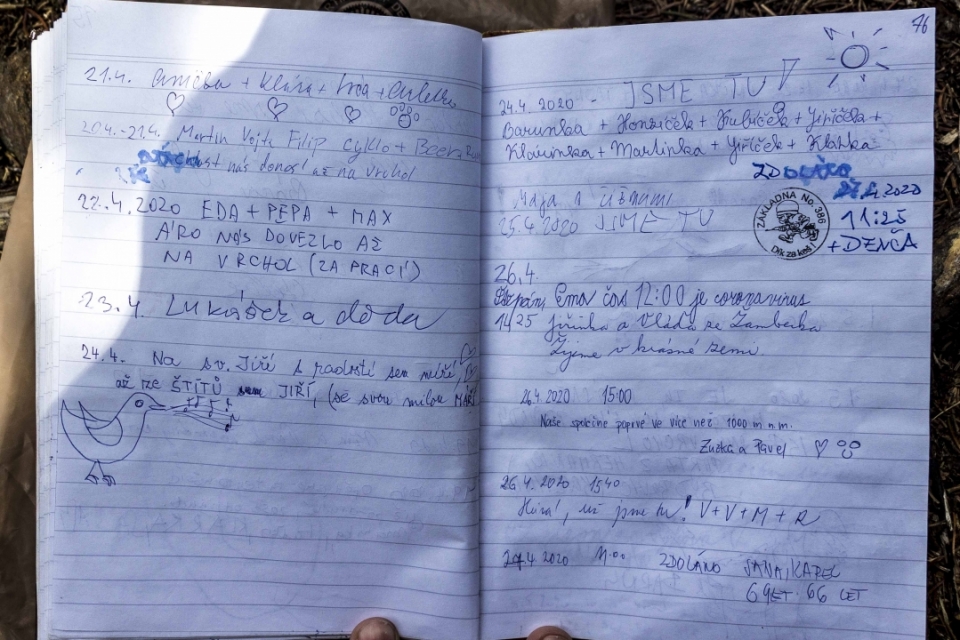 21.4. Anička + Klára + +
20.4.-21.4. Martin Vojta Filip cyklo + Beers
nás donesl až na vrchol
22.4.2020 EDA + PEPA + MAX
A'RO NÁS DOVEZLO AŽ
NA VRCHOL (ZA PRACÍ)
23.4. Lukášek a děda
24.4. Na sv. Jiří s radostí sem míří,
až ze ŠTÍTŮ sem JIŘÍ, (se svou milou MAŘÍ
76
24.4.2020 - JSME TU!
Barunka + Honzíček + Kubíček + Jiříček +
Klárinka + Martinka + Jiříček + Klárka
ZDOLÁNO
2020
11:25
+ DENČA
ZÁKLADNA No. 386
Dík za keš!
Mája a
25.4.2020 JSME TU
26.4.
Ema čas 12:00 je coronavirus
14 25 Jiřinka a Vláďa ze Žamberka
Žijeme v krásné zemi
26.4.2020 15:00
Naše společné poprvé ve více než 1000 m n.m.
Zuzka a Pavel
26.4.2020 15 40
Hurá, už jsme tu! V+V+M+R
27.4.2020 11.00 ZDOLÁNO JANA, KAREL
69 LET 66 LET